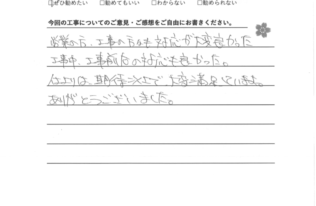 □ぜひ勧めたい □勧めてもいい □わからない □勧められない
今回の工事についてのご意見・ご感想をご自由にお書きください。
営業の方、工事の方の対応が大変良かった
工事中、工事前后の対応も良かった。
仕上りは、期待以上で大変満足しています。
ありがとうございました。